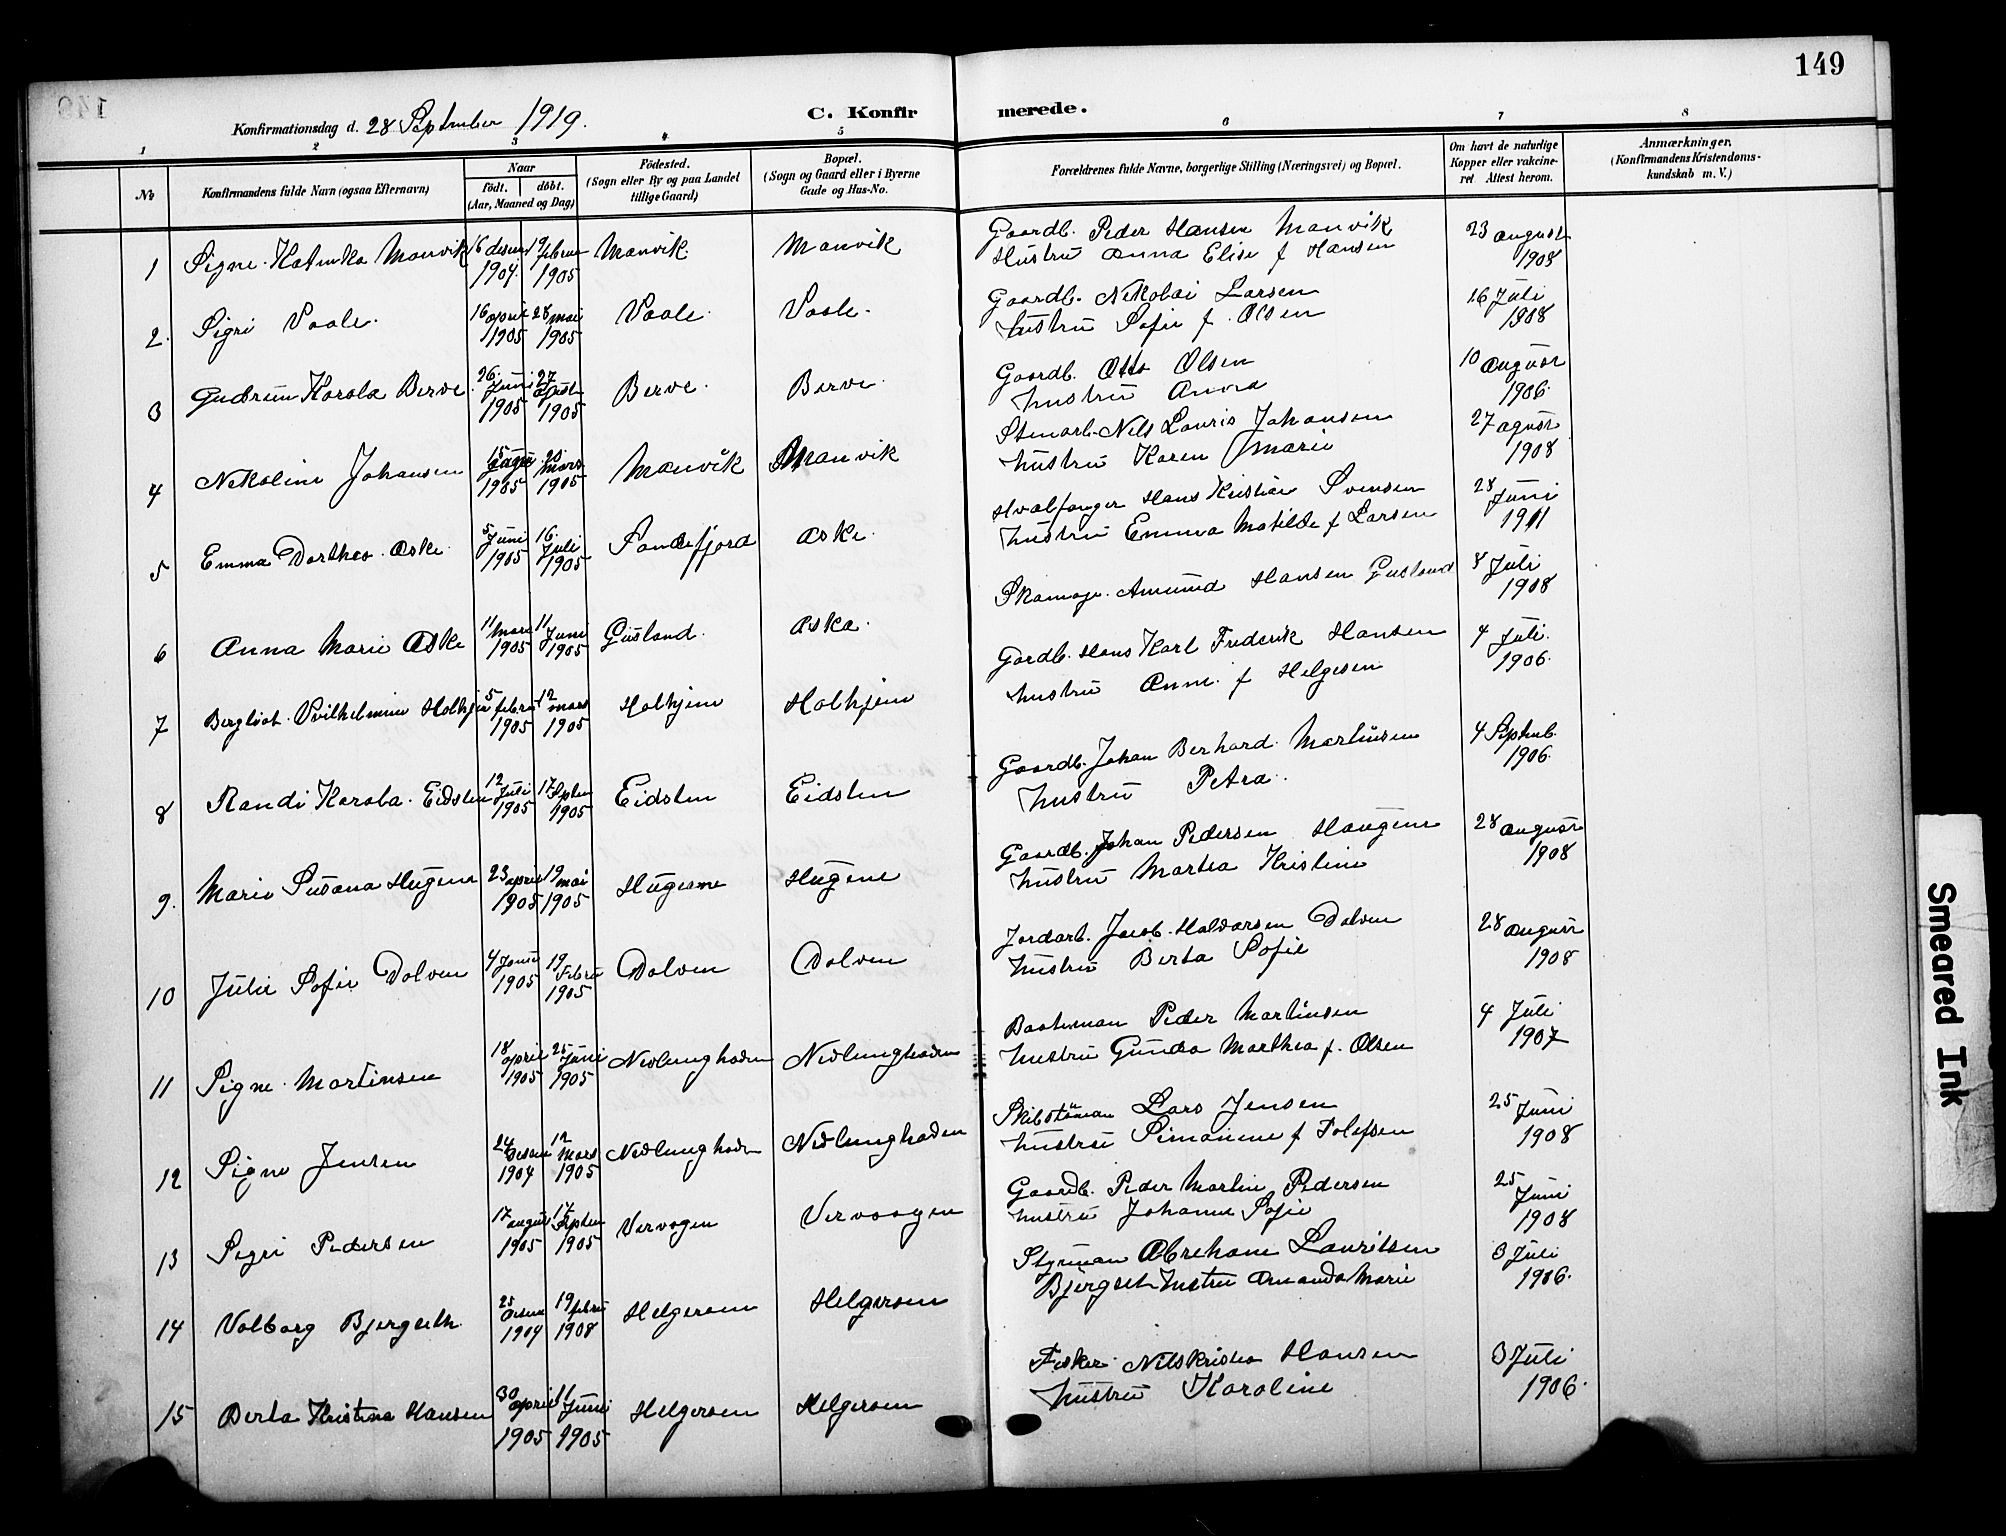 149
Konfirmationsdag d. 28 September 1919.
C. Konfirmerede.
1 2 3 4 5 6 7 8
No
Konfirmandens fulde Navn (ogsaa Efternavn)
Naar
födt. döbt.
(Aar, Maaned og Dag)
Födested.
(Sogn eller By og paa Landet
tillige Gaard)
Bopæl.
(Sogn og Gaard eller i Byerne
Gade og Hus-No.
Forældrenes fulde Navne, borgerlige Stilling (Næringsvei) og Bopæl.
Om havt de naturlige
Kopper eller vakcine-
ret Attest herom.
Anmærkninger.
(Konfirmandens Kristendoms-
kundskab m. V.)
1 Signe Katinka Manvik 16 desem 1904 19 februa 1905 Manvik Manvik
Gaardb. Peder Hansen Manvik 23 august
Hustru Anna Elise f Hansen 1908
2. Sigri Vaale. 16 april 1905 28 mai 1905 Vaale. Vaale.
Gaardb. Nikolai Larsen 16 Juli
hustru Sofie f. Olsen 1908
3 Gudrun Karola Berve 26. Juni 1905 27 1905 Berve. Berve.
Gaardb. Otto Olsen 10 august
hustru Anna 1906
4 Nikoline Johansen 15 1905 20 mars 1905 Manvik Manvik
Stenarb. Nils Lauris Johansen 27 agust
hustru Karen Marie 1908
5 Emma Dorthea Aske. 5 Juni 1905 16. Juli 1905 Sandefjord Aske.
Hvalfanger Hans Kristian Svensen 28 Juni
hustru Emma Matilde f Larsen 1911
6 Anna Marie Aske 11 mars 1905 11 Juni 1905 Gusland. Aska.
Skomager Amund Hansen Gusland 8 Juli
1908
7 Bergliot Vilhelmine Holhjem 5 febru 1905 12 mars 1905 Holhjem Holhjem
Gardb. Hans Karl Frederik Hansen 4 Juli.
hustru Anne. f Helgesen 1906.
8 Randi Karola. Eidsten 12 Juli 1905 17 Septem 1905 Eidsten Eidsten
Gaardb. Johan Berhard Martinsen 4 Septemb.
hustru Petra. 1906.
9. Marie Susana Hugene 23 april 1905 19 mai 1905 Hugene Hugene
Gaardb. Johan Pedersen Haugene 28 august
hustru Martea Kristine 1908
10 Julie Sofie Dolven 4 Janu 1905 19 Febru 1905 Dolven Dolven
Jordarb. Jacob Halvorsen Dolven 28 august
hustru Berta Sofie 1908
11 Signe Martinsen 18 april 1905 25 Juni 1905 Nevlunghavn Nevlunghavn
Baatsman Peder Martinsen 4 Juli
hustru Gunda Marthea f. Olsen 1907
12 Signe Jensen 24 desem 1904 12 Mars 1905 Nevlunghavn Nevlunghaven
Skibstöman Lars Jensen 25 Juni
hustru Simonine f Tolefsen 1908
13 Sigri Pedersen 17 august 1905 17 Septem 1905 Vervagen Vervaagen
Gaardb. Peder Martin Pedersen 25 Juni
hustru Johanne Sofie 1908
14 Valborg Bjergseth 25 desem 1904 19 febru 1908 Helgeroen Helgeroen
Styrman Abreham Lauritsen 3 Juli
Bjergseth hustru Amanda Marie 1906.
15 Berta Kristina Hansen 30 april 1905 11 Juni 1905 Helgeroen Helgeroen
Fisker Nils Kristian Hansen 3 Juli
hustru Karoline 1906.
Smeared Ink